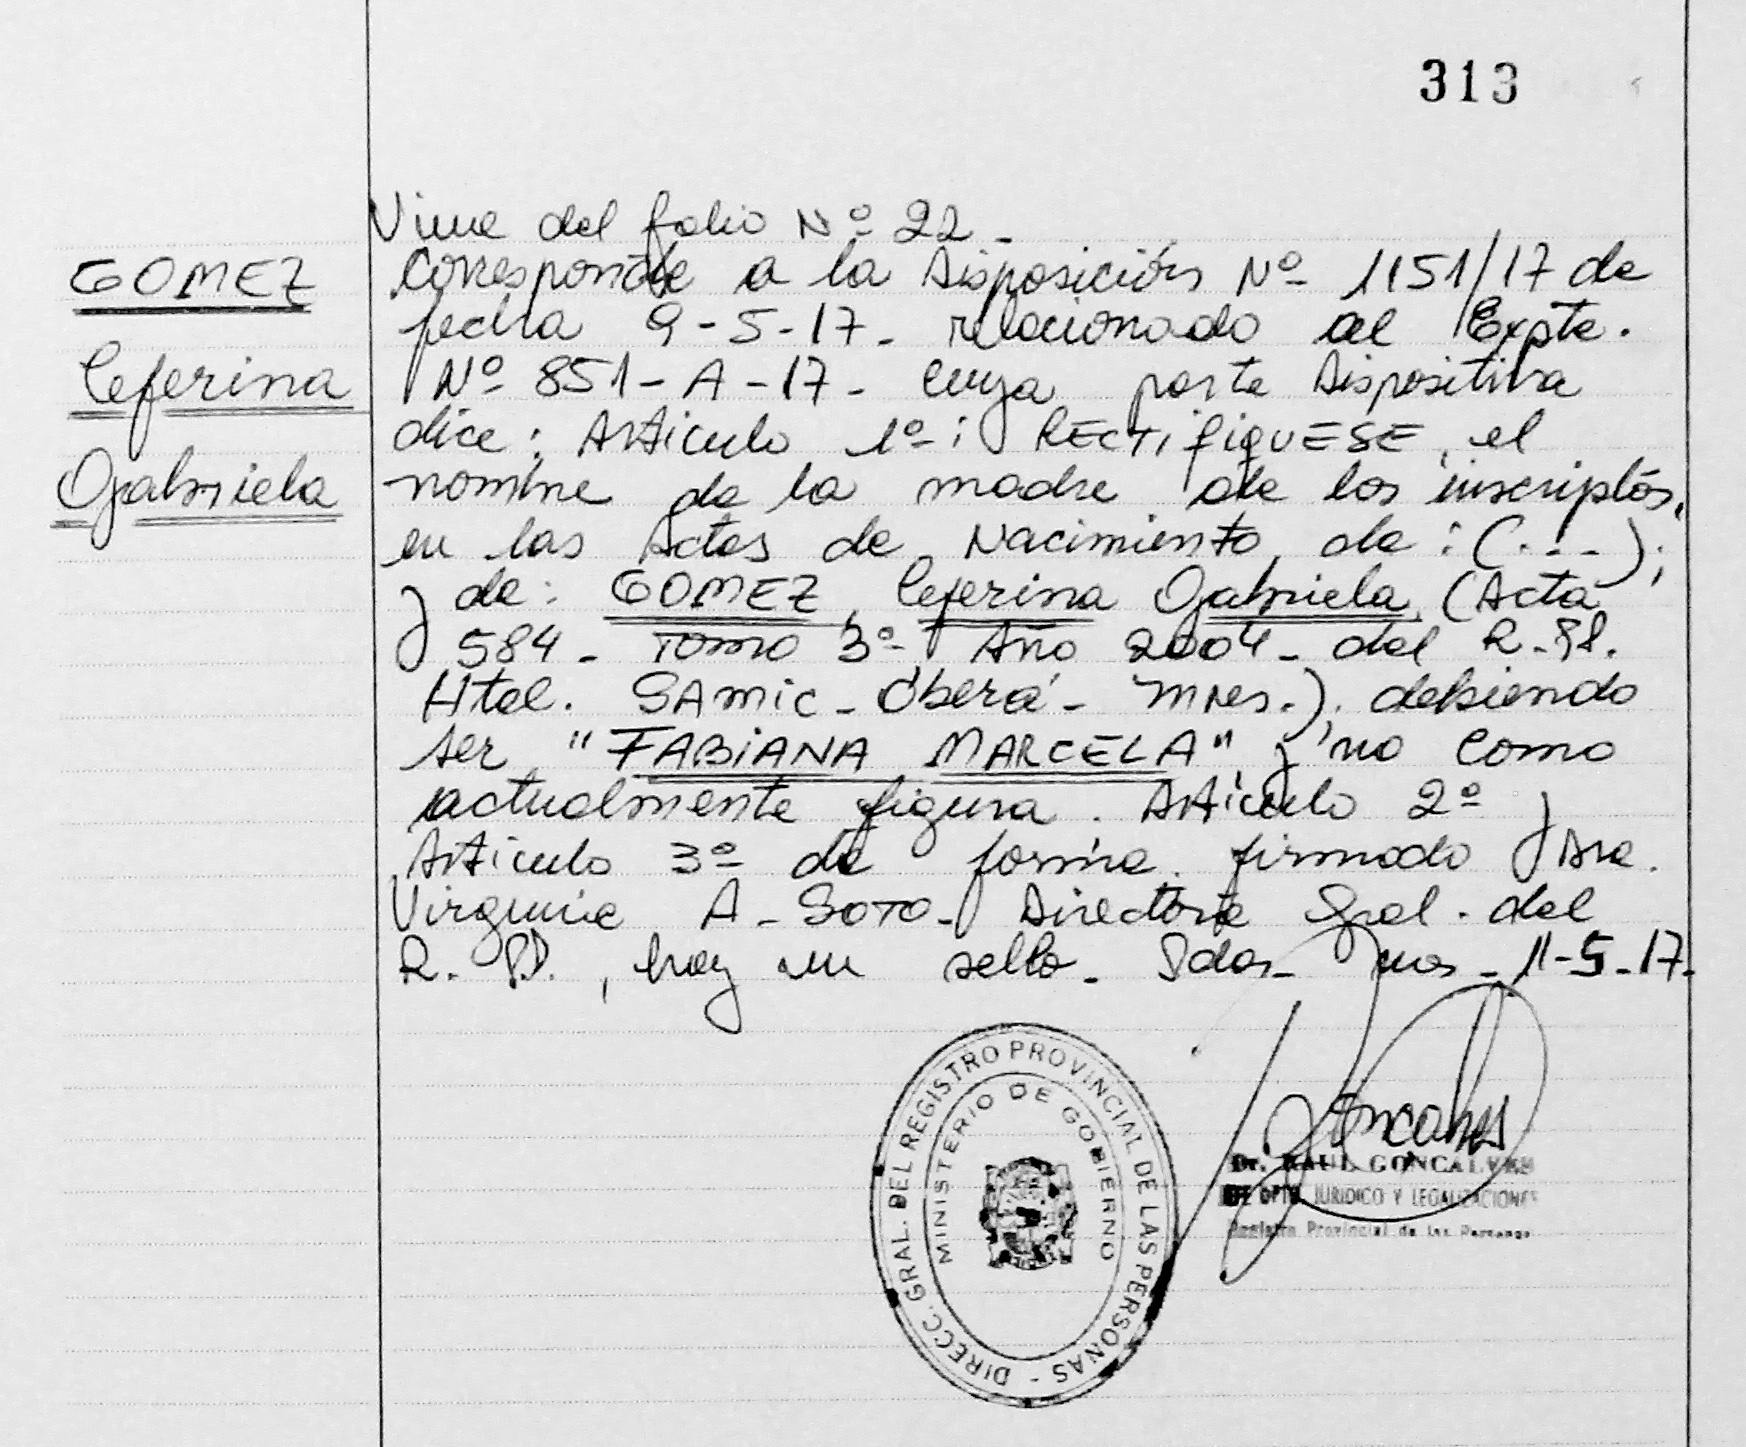 313
GOMEZ
Ceferina
Gabriela
Viene del folio Nº 22-
Corresponde a la Disposición Nº 1151/17 de
fecha 9-5-17- relacionado al Expte.
Nº 851-A-17- Cuya parte Dispositiva
dice: Artículo 1º: RECTIFIQUESE, el
nombre de la madre de los inscriptos,
en las Actas de Nacimiento, de: (...);
y de: GOMEZ, Ceferina Gabriela, (Acta
584- Tomo 3º- Año 2004- del R.PP.
Htal. SAMIC- Oberá- Mnes.), debiendo
ser "FABIANA MARCELA" y no como
actualmente figura. Artículo 2º y
Artículo 3º de forma. firmado Dra.
Virginia A- SOTO- Directora Gral. del
R. PP., hay un sello- Pdas- Mnes- 11-5-17-
DIRECC. GRAL. DEL REGISTRO PROVINCIAL DE LAS PERSONAS -
MINISTERIO DE GOBIERNO
Dr. RAUL GONCALVES
JEFE DPTO. JURIDICO Y LEGALIZACIONES
Registro Provincial de las Personas